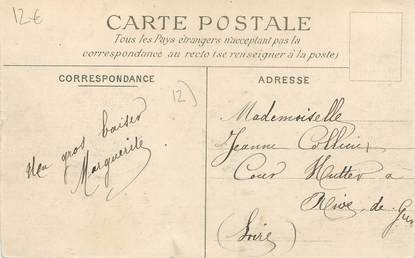 12€
CARTE POSTALE
Tous les Pays étrangers n'acceptant pas la
correspondance au recto (se renseigner à la poste)
CORRESPONDANCE
ADRESSE
12)
Un gros baiser
Marguerite
Mademoiselle
Jeanne
Cour Hutter à
Rive de Gier
(Loire)